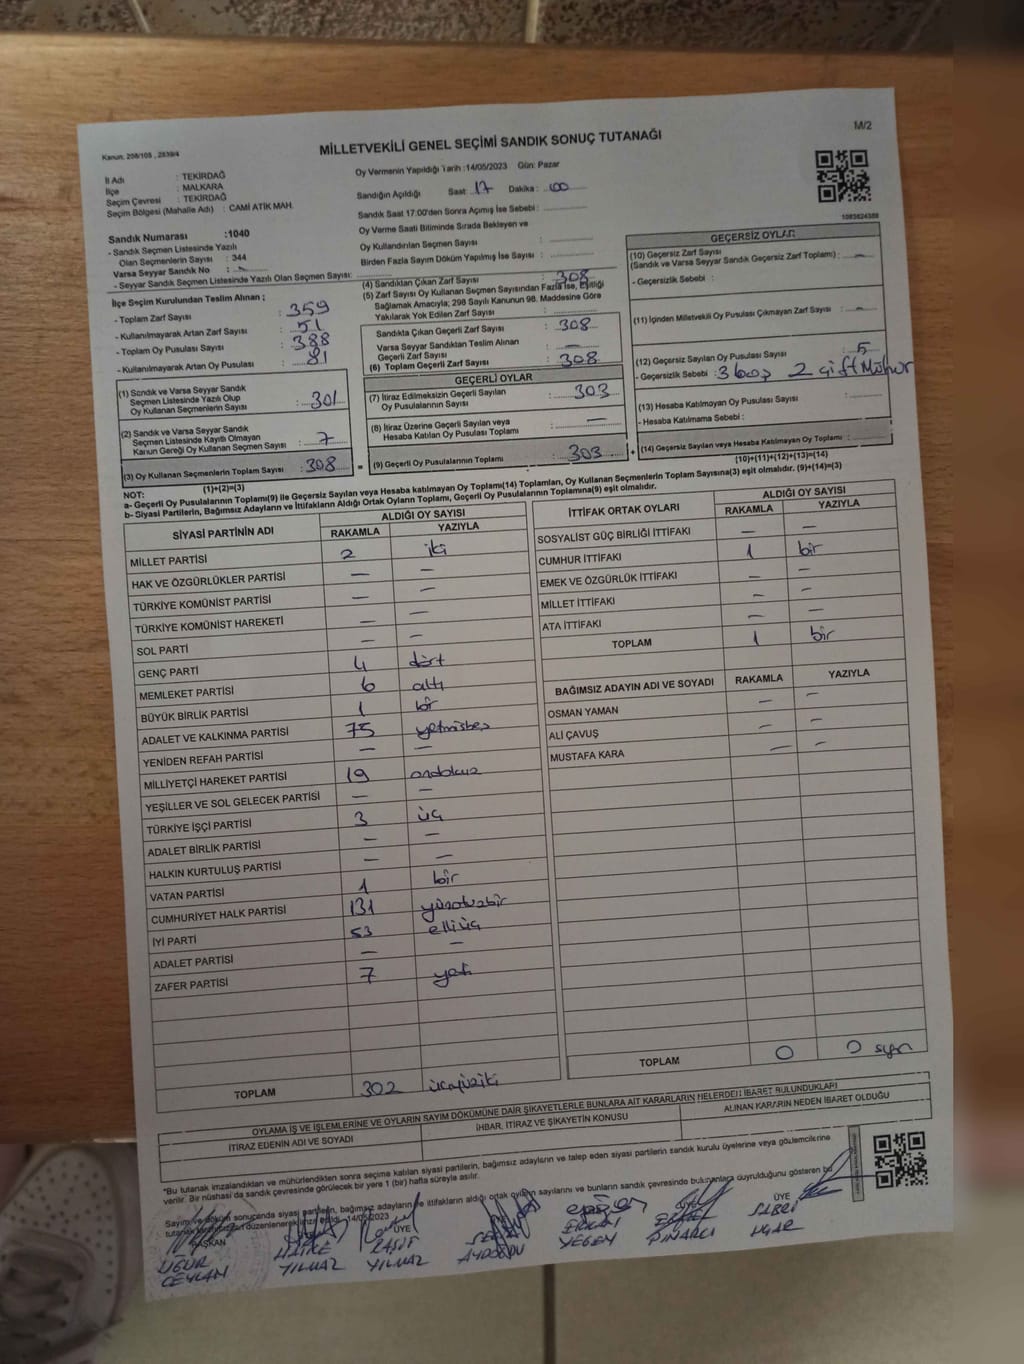 Kanun: 298/105 , 2839/4
MİLLETVEKİLİ GENEL SEÇİMİ SANDIK SONUÇ TUTANAĞI
M/2
İl Adı : TEKİRDAĞ
İlçe : MALKARA
Seçim Çevresi : TEKİRDAĞ
Seçim Bölgesi (Mahalle Adı) : CAMİ ATİK MAH.
Oy Vermenin Yapıldığı Tarih :14/05/2023 Gün: Pazar
Sandığın Açıldığı Saat: 17 Dakika : 00
Sandık Saat 17:00'den Sonra Açımış İse Sebebi :
Oy Verme Saati Bitiminde Sırada Bekleyen ve
Oy Kullandırılan Seçmen Sayısı :
Birden Fazla Sayım Döküm Yapılmış İse Sayısı :
Sandık Numarası :1040
- Sandık Seçmen Listesinde Yazılı
Olan Seçmenlerin Sayısı : 344
Varsa Seyyar Sandık No : -
- Seyyar Sandık Seçmen Listesinde Yazılı Olan Seçmen Sayısı:
İlçe Seçim Kurulundan Teslim Alınan ;
- Toplam Zarf Sayısı : 359
- Kullanılmayarak Artan Zarf Sayısı : 51
- Toplam Oy Pusulası Sayısı : 388
- Kullanılmayarak Artan Oy Pusulası : 81
(1) Sandık ve Varsa Seyyar Sandık
Seçmen Listesinde Yazılı Olup
Oy Kullanan Seçmenlerin Sayısı : 301
(2) Sandık ve Varsa Seyyar Sandık
Seçmen Listesinde Kayıtlı Olmayan
Kanun Gereği Oy Kullanan Seçmen Sayısı : 7
(3) Oy Kullanan Seçmenlerin Toplam Sayısı : 308
(1)+(2)=(3)
(4) Sandıktan Çıkan Zarf Sayısı : 308
(5) Zarf Sayısı Oy Kullanan Seçmen Sayısından Fazla İse, Eşitliği
Sağlamak Amacıyla; 298 Sayılı Kanunun 98. Maddesine Göre
Yakılarak Yok Edilen Zarf Sayısı :
Sandıkta Çıkan Geçerli Zarf Sayısı : 308
Varsa Seyyar Sandıktan Teslim Alınan
Geçerli Zarf Sayısı : -
(6) Toplam Geçerli Zarf Sayısı : 308
GEÇERLİ OYLAR
(7) İtiraz Edilmeksizin Geçerli Sayılan
Oy Pusulalarının Sayısı : 303
(8) İtiraz Üzerine Geçerli Sayılan veya
Hesaba Katılan Oy Pusulası Toplamı : -
(9) Geçerli Oy Pusulalarının Toplamı : 303
1083624388
GEÇERSİZ OYLAR
(10) Geçersiz Zarf Sayısı
(Sandık ve Varsa Seyyar Sandık Geçersiz Zarf Toplamı) : -
- Geçersizlik Sebebi :
(11) İçinden Milletvekili Oy Pusulası Çıkmayan Zarf Sayısı : -
(12) Geçersiz Sayılan Oy Pusulası Sayısı : 5
- Geçersizlik Sebebi : 3 boş 2 çift Mühür
(13) Hesaba Katılmayan Oy Pusulası Sayısı :
- Hesaba Katılmama Sebebi :
(14) Geçersiz Sayılan veya Hesaba Katılmayan Oy Toplamı :
(10)+(11)+(12)+(13)=(14)
NOT:
a- Geçerli Oy Pusulalarının Toplamı(9) ile Geçersiz Sayılan veya Hesaba katılmayan Oy Toplamı(14) Toplamları, Oy Kullanan Seçmenlerin Toplam Sayısına(3) eşit olmalıdır. (9)+(14)=(3)
b- Siyasi Partilerin, Bağımsız Adayların ve İttifakların Aldığı Ortak Oyların Toplamı, Geçerli Oy Pusulalarının Toplamına(9) eşit olmalıdır.
SİYASİ PARTİNİN ADI ALDIĞI OY SAYISI
RAKAMLA YAZIYLA
MİLLET PARTİSİ 2 iki
HAK VE ÖZGÜRLÜKLER PARTİSİ - -
TÜRKİYE KOMÜNİST PARTİSİ - -
TÜRKİYE KOMÜNİST HAREKETİ - -
SOL PARTİ - -
GENÇ PARTİ 4 dört
MEMLEKET PARTİSİ 6 altı
BÜYÜK BİRLİK PARTİSİ 1 bir
ADALET VE KALKINMA PARTİSİ 75 yetmişbeş
YENİDEN REFAH PARTİSİ - -
MİLLİYETÇİ HAREKET PARTİSİ 19 ondokuz
YEŞİLLER VE SOL GELECEK PARTİSİ - -
TÜRKİYE İŞÇİ PARTİSİ 3 üç
ADALET BİRLİK PARTİSİ - -
HALKIN KURTULUŞ PARTİSİ - -
VATAN PARTİSİ 1 bir
CUMHURİYET HALK PARTİSİ 131 yüzotuzbir
İYİ PARTİ 53 elliüç
ADALET PARTİSİ - -
ZAFER PARTİSİ 7 yedi
TOPLAM 302 üçyüziki
İTTİFAK ORTAK OYLARI ALDIĞI OY SAYISI
RAKAMLA YAZIYLA
SOSYALİST GÜÇ BİRLİĞİ İTTİFAKI - -
CUMHUR İTTİFAKI 1 bir
EMEK VE ÖZGÜRLÜK İTTİFAKI - -
MİLLET İTTİFAKI - -
ATA İTTİFAKI - -
TOPLAM 1 bir
BAĞIMSIZ ADAYIN ADI VE SOYADI RAKAMLA YAZIYLA
OSMAN YAMAN - -
ALİ ÇAVUŞ - -
MUSTAFA KARA - -
TOPLAM 0 0 sıfır
OYLAMA İŞ VE İŞLEMLERİNE VE OYLARIN SAYIM DÖKÜMÜNE DAİR ŞİKAYETLERLE BUNLARA AİT KARARLARIN NELERDEN İBARET BULUNDUKLARI
İTİRAZ EDENİN ADI VE SOYADI İHBAR, İTİRAZ VE ŞİKAYETİN KONUSU ALINAN KARARIN NEDEN İBARET OLDUĞU
"Bu tutanak imzalandıktan ve mühürlendikten sonra seçime katılan siyasi partilerin, bağımsız adayların ve talep eden siyasi partilerin sandık kurulu üyelerine veya gözlemcilerine
verilir. Bir nüshası da sandık çevresinde görülecek bir yere 1 (bir) hafta süreyle asılır.
Sayım ve döküm sonucunda siyasi partilerin, bağımsız adayların ve ittifakların aldığı ortak oyların sayılarını ve bunların sandık çevresinde bulunanlara duyrulduğunu gösteren bu
tutanak düzenlenerek 14/05/2023
BAŞKAN ÜYE ÜYE
UĞUR CEYLAN
HATİCE YILMAZ
RAŞİT YILMAZ
AYDOĞDU
ERKAN YEGEN
PINARCI
SABRİ UÇAR